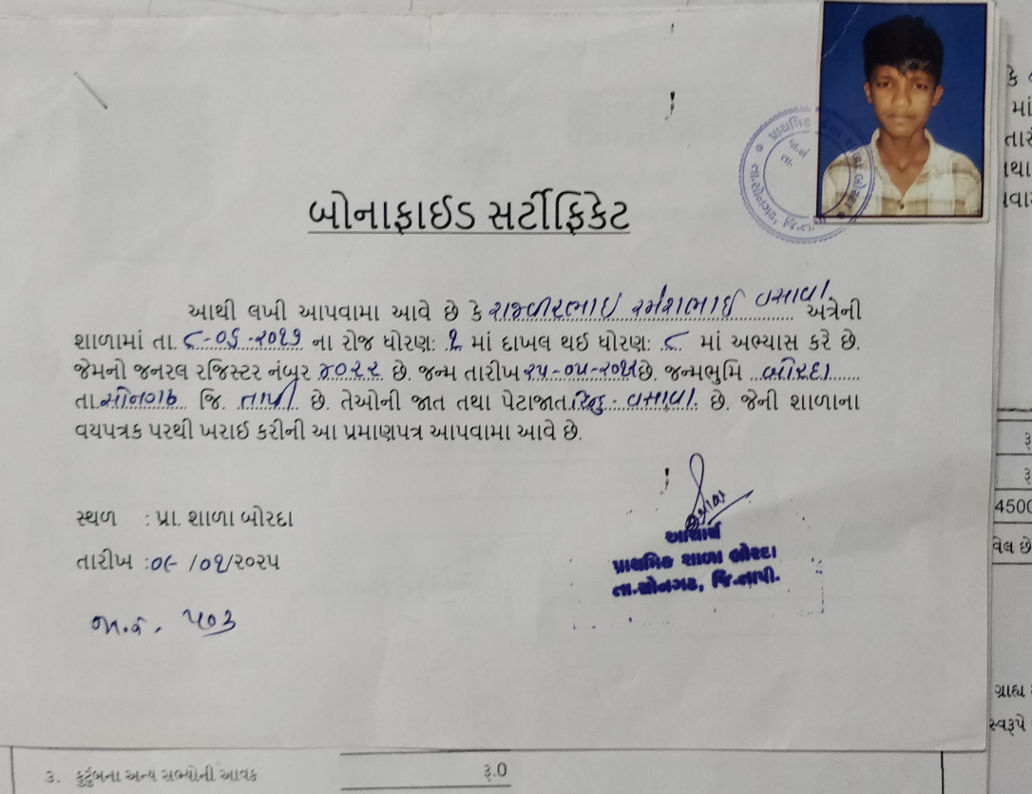 બોનાફાઈડ સર્ટીફિકેટ
આથી લખી આપવામા આવે છે કે રાજવીરભાઇ રમેશભાઇ વસાવા અત્રેની
શાળામાં તા. ૮-૦૬-૨૦૧૭ ના રોજ ધોરણ: ૧ માં દાખલ થઈ ધોરણ: ૮ માં અભ્યાસ કરે છે.
જેમનો જનરલ રજિસ્ટર નંબર ૪૦૨૨ છે. જન્મ તારીખ ૨૫-૦૫-૨૦૧૧ છે. જન્મભુમિ બોરદા
તા. સોનગઢ જિ. તાપી છે. તેઓની જાત તથા પેટાજાત હિન્દુ - વસાવા છે. જેની શાળાના
વયપત્રક પરથી ખરાઈ કરીની આ પ્રમાણપત્ર આપવામા આવે છે.
સ્થળ : પ્રા. શાળા બોરદા
તારીખ :૦૯ /૦૧/૨૦૨૫
જા.નં. ૫૦૩
આચાર્ય
પ્રાથમિક શાળા બોરદા
તા.સોનગઢ, જિ.તાપી.
કે
માં
તારી
તથા
રૂ
રૂ
4500
વેલ છે
ગ્રાહ્ય
સ્વરૂપે
૩. કુટુંબના અન્ય સભ્યોની આવક રૂ.0